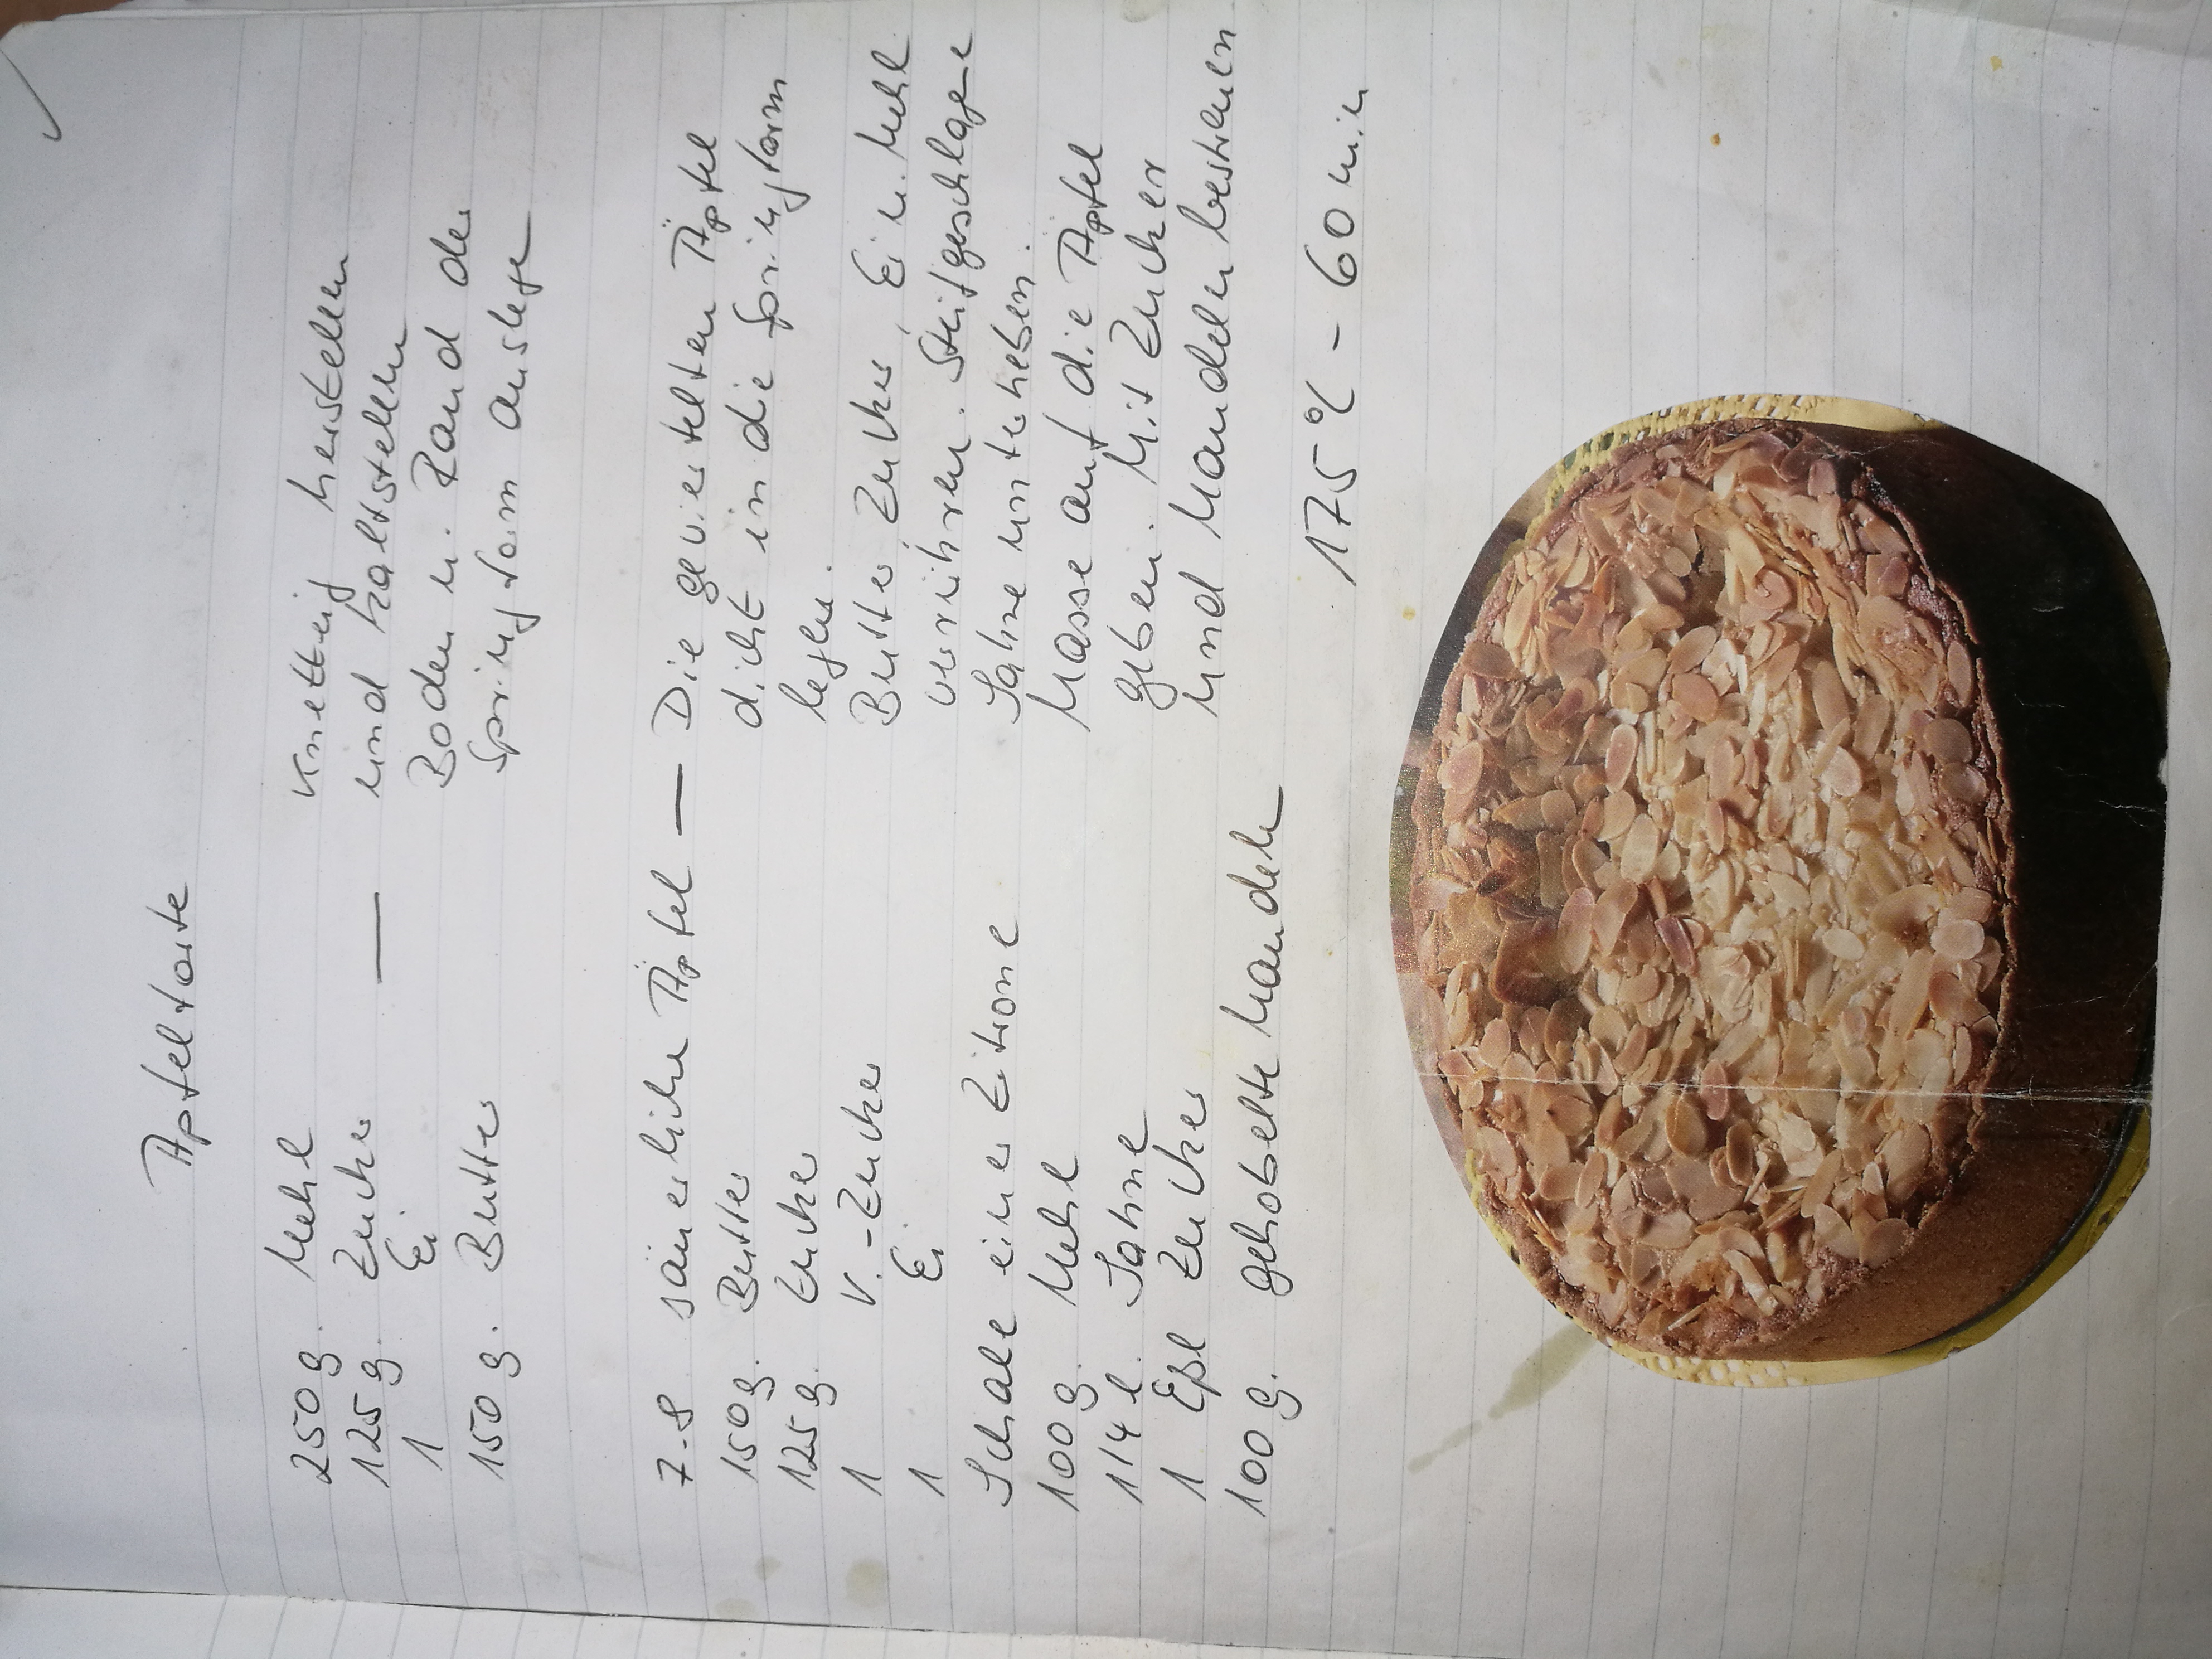 Apfeltorte
250 g. Mehl
125 g. Zucker —
1 Ei
150 g. Butter
Knetteig herstellen
und kaltstellen
Boden u. Rand der
Springform auslegen
7-8 säuerliche Äpfel —
150 g. Butter
125 g. Zucker
1 V.-Zucker
1 Ei
Schale einer Zitrone
100 g. Mehl
1/4 l. Sahne
1 Eßl Zucker
100 g. gehobelte Mandeln
Die geviertelten Äpfel
dicht in die Springform
legen.
Butter, Zucker, Ei u. Mehl
verrühren. Steifgeschlagene
Sahne unterheben.
Masse auf die Äpfel
geben. Mit Zucker
und Mandeln bestreuen
175°C - 60 min